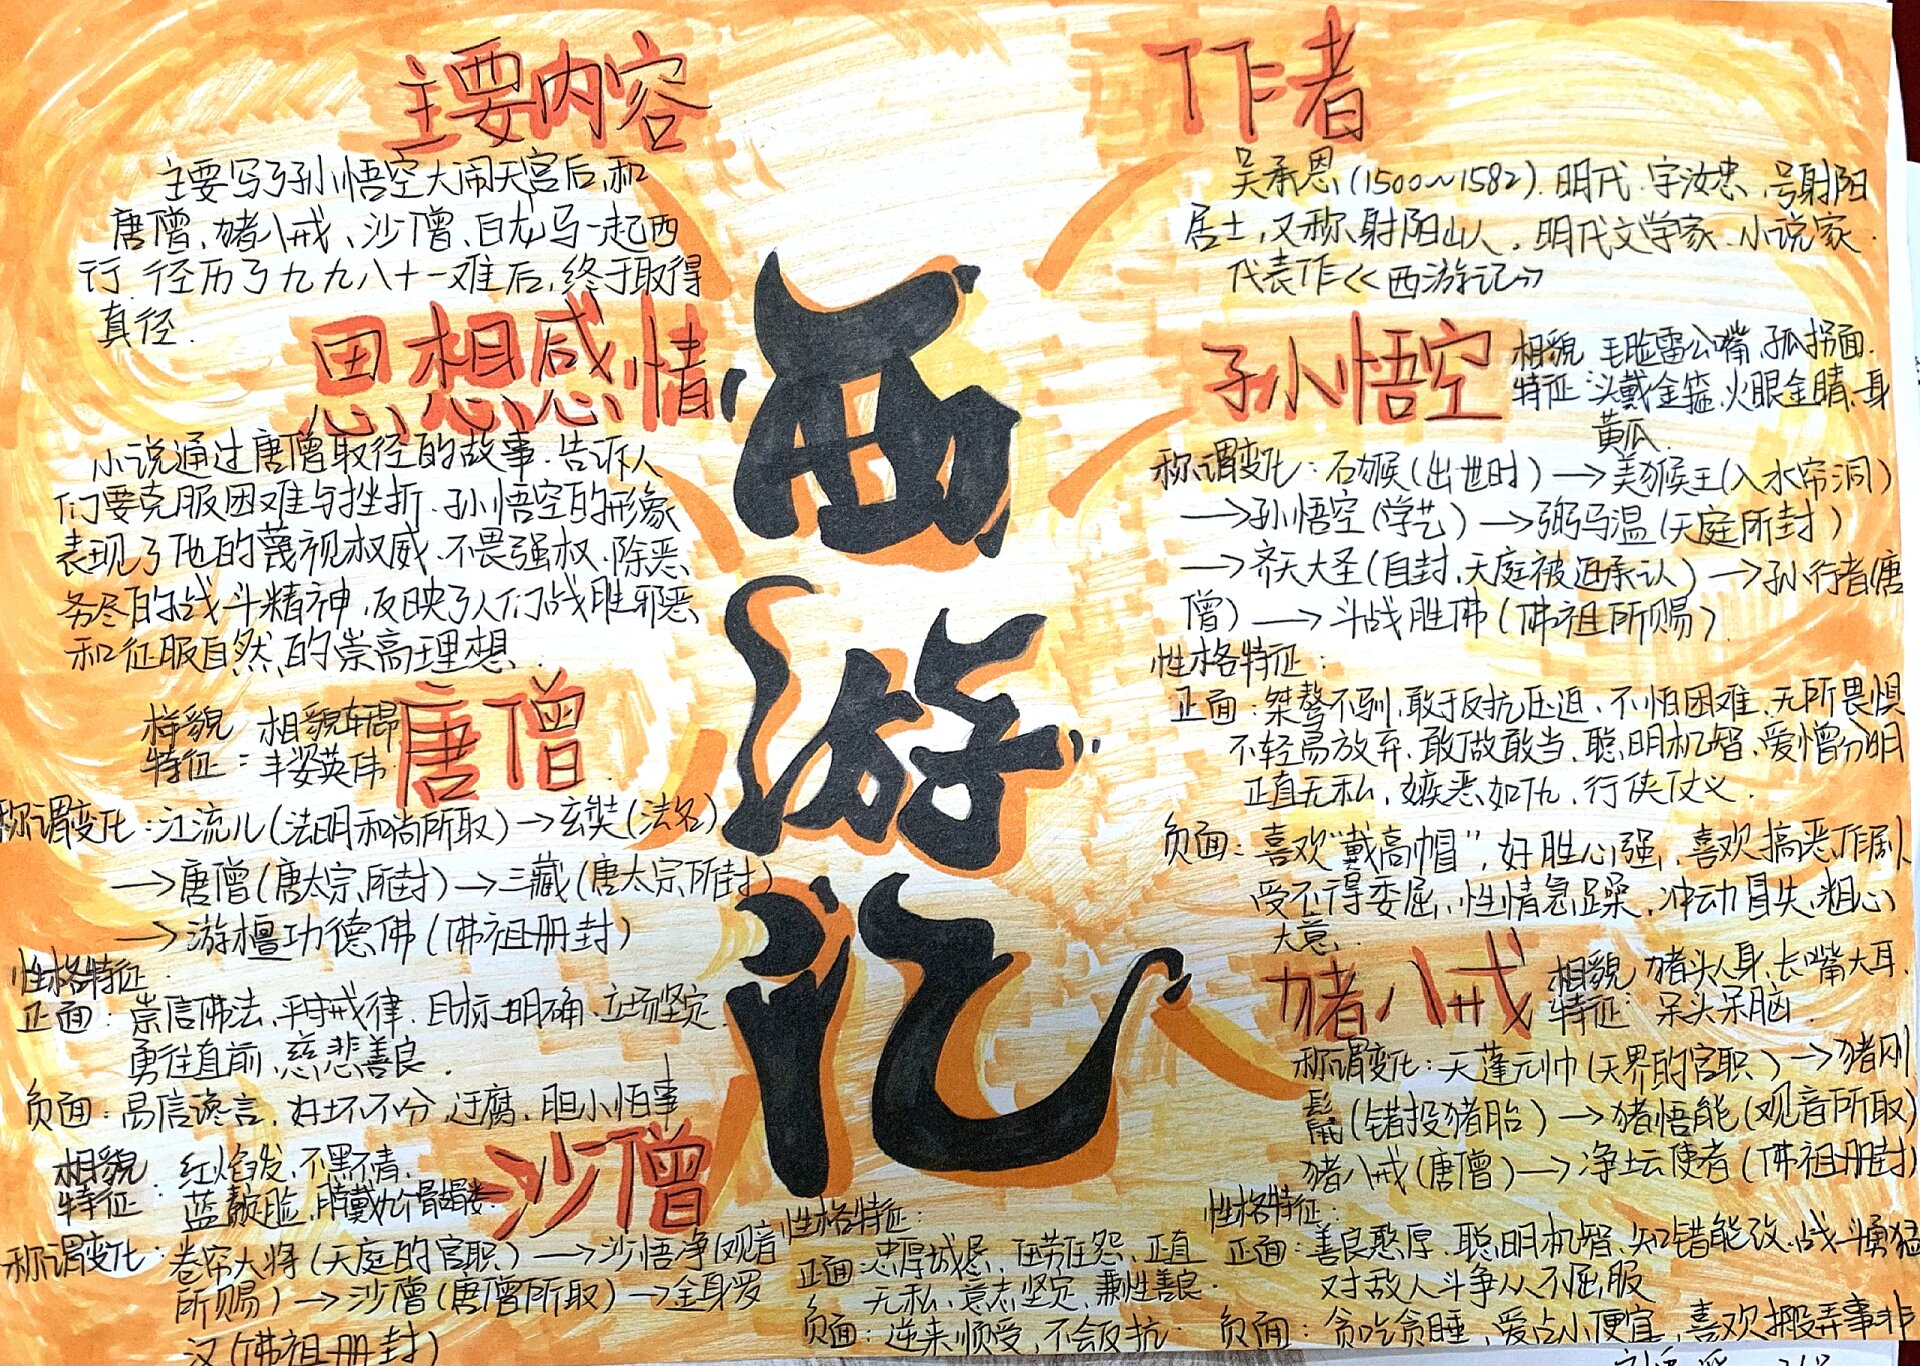 主要内容
主要写了孙悟空大闹天宫后,和
唐僧、猪八戒、沙僧、白龙马一起西
行.径历了九九八十一难后,终于取得
真径.
思想感情
小说通过唐僧取径的故事.告诉人
们要克服困难与挫折.孙悟空的形象
表现了他的蔑视权威、不畏强权、除恶
务尽的战斗精神,反映了人们战胜邪恶、
和征服自然的崇高理想.
唐僧
样貌 相貌轩昂
特征:丰姿英伟
称谓变化:江流儿(法明和尚所取)→玄奘(法名)
→唐僧(唐太宗所封)→三藏(唐太宗所封)
→游檀功德佛(佛祖册封)
性格特征.
正面:崇信佛法、严守戒律.目标明确.立场坚定.
勇往直前、慈悲善良.
负面:易信谗言,好坏不分,迂腐、胆小怕事
沙僧
相貌 红焰发,不黑不青,
特征:蓝靛脸,项戴九个骷髅
称谓变化:卷帘大将(天庭的官职)→沙悟净(观音
所赐)→沙僧(唐僧所取)→金身罗
汉(佛祖册封)
性格特征:
正面:忠厚诚恳、任劳任怨、正直
无私、意志坚定、秉性善良.
负面:逆来顺受,不会反抗
西游记
作者
吴承恩,(1500~1582).明代.字汝忠、号射阳
居士,又称射阳山人.明代文学家.小说家.
代表作《西游记》
孙悟空
相貌 毛脸雷公嘴,孤拐面.
特征:头戴金箍.火眼金睛.身
黄瓜.
称谓变化:石猴(出世时)→美猴王(入水帘洞)
→孙悟空(学艺)→弼马温(天庭所封)
→齐天大圣(自封,天庭被迫承认)→孙行者(唐
僧)→斗战胜佛(佛祖所赐)
性格特征:
正面:桀骜不驯,敢于反抗压迫,不怕困难、无所畏惧
不轻易放弃.敢做敢当、聪明机智、爱憎分明
正直无私,嫉恶如仇,行侠仗义.
负面:喜欢“戴高帽”,好胜心强,喜欢搞恶作剧
受不得委屈,性情急躁,冲动冒失,粗心
大意.
猪八戒
相貌 猪头人身、长嘴大耳.
特征:呆头呆脑.
称谓变化:天蓬元帅(天界的官职)→猪刚
鬣(错投猪胎)→猪悟能(观音所取)
猪八戒(唐僧)→净坛使者(佛祖册封)
性格特征:
正面:善良憨厚、聪明机智、知错能改、战斗勇猛
对敌人斗争从不屈服
负面:贪吃贪睡,爱占小便宜,喜欢搬弄事非